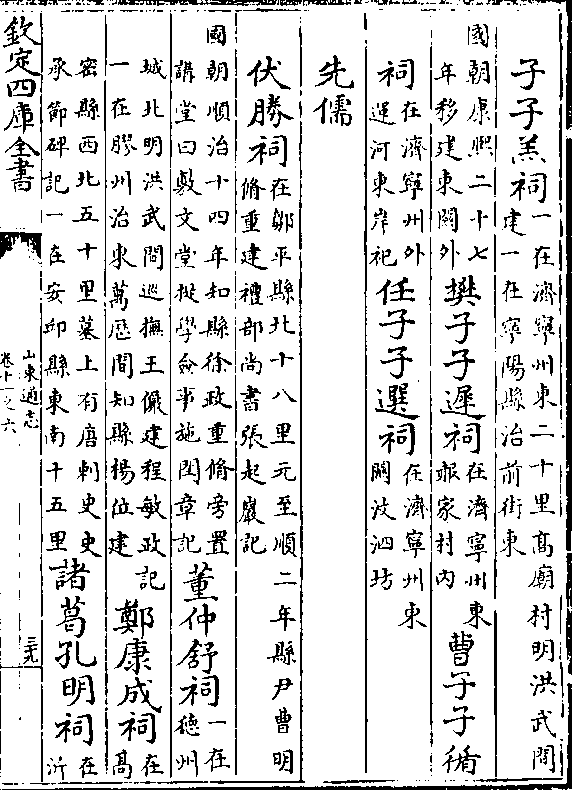 子子羔祠一在濟寧州東二十里髙廟村明洪武間
建一在寧陽縣治前街東
國朝康熙二十七
年移建東關外樊子子遲祠在濟寧州東
郰家村内曹子子循
祠在濟寧州外
運河東岸祀任子子選祠在濟寧州東
關汶泗坊
先儒
伏勝祠在鄒平縣北十八里元至順二年縣尹曹明
脩重建禮部尚書張起巖記
國朝順治十四年知縣徐政重脩旁置
講堂曰敷文堂提學僉事施閏章記董仲舒祠一在
德州
城北明洪武間巡撫王儼建程敏政記
一在膠州治東萬歷間知縣楊位建鄭康成祠在
髙
密縣西北五十里墓上有唐刺史史
承節碑記一在安邱縣東南十五里諸葛孔明祠在
沂
欽定四庫全書
山東通志
卷十一之六
三九